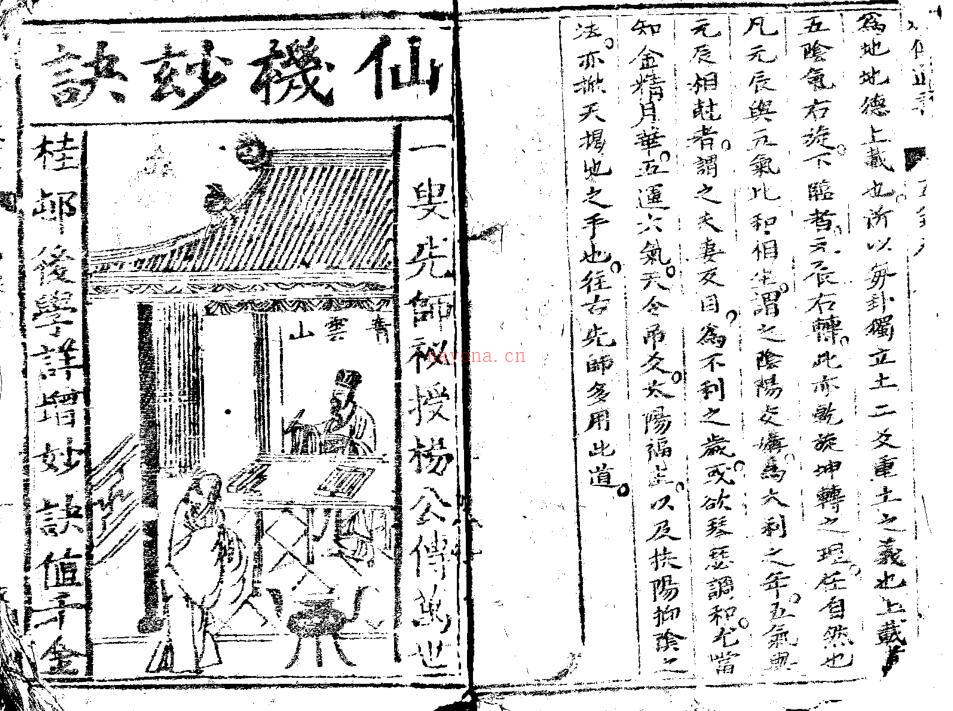 為地地德上載也所以每卦獨立土二爻重土之義也上載
五陰氣右旋下臨者元辰右轉此亦乾旋坤轉之理在自然也
凡元辰與元氣比和相生謂之陰陽交媾為大利之年五氣與
元辰相尅者謂之夫妻反目為不利之歲或欲琴瑟調和尤當
知金精月華五運六氣天令吊爻太陽福星以及扶陽抑陰之
法亦掀天揭地之手也往古先師多用此道
仙機妙訣
一叟先師祕授楊公傳萬世
青雲山
桂邨後學詳增妙訣值千金
nayona.cn